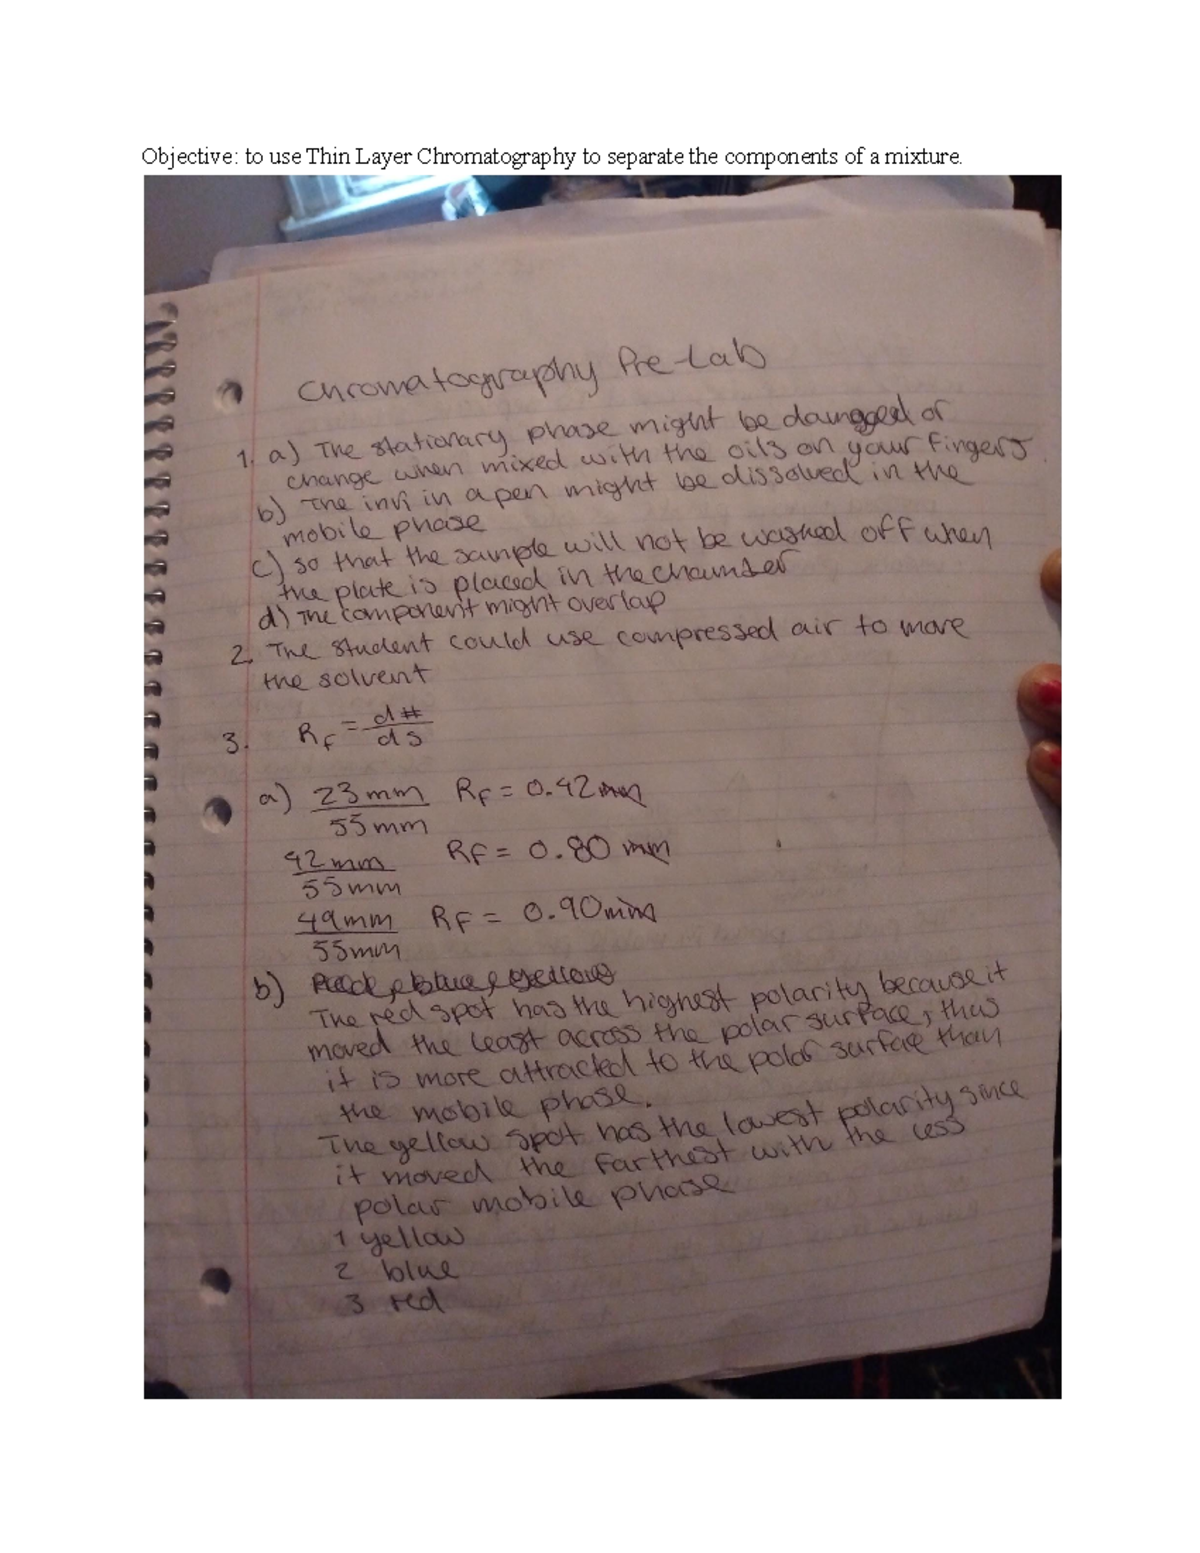 Objective: to use Thin Layer Chromatography to separate the components of a mixture.
Chromatography Pre-Lab
1. a) The stationary phase might be daungged or
change when mixed with the oils on your fingers
b) The ink in a pen might be dissolved in the
mobile phase
c) so that the sample will not be washed off when
the plate is placed in the chamber
d) The component might overlap
2. The student could use compressed air to move
the solvent
3. Rf = d#
ds
a) 23mm Rf = 0.42mm
55mm
42mm Rf = 0.80 mm
55mm
49mm Rf = 0.90mm
55mm
b)
The red spot has the highest polarity because it
moved the least across the polar surface, thus
it is more attracted to the polar surface than
the mobile phase.
The yellow spot has the lowest polarity since
it moved the farthest with the less
polar mobile phase
1 yellow
2 blue
3 red